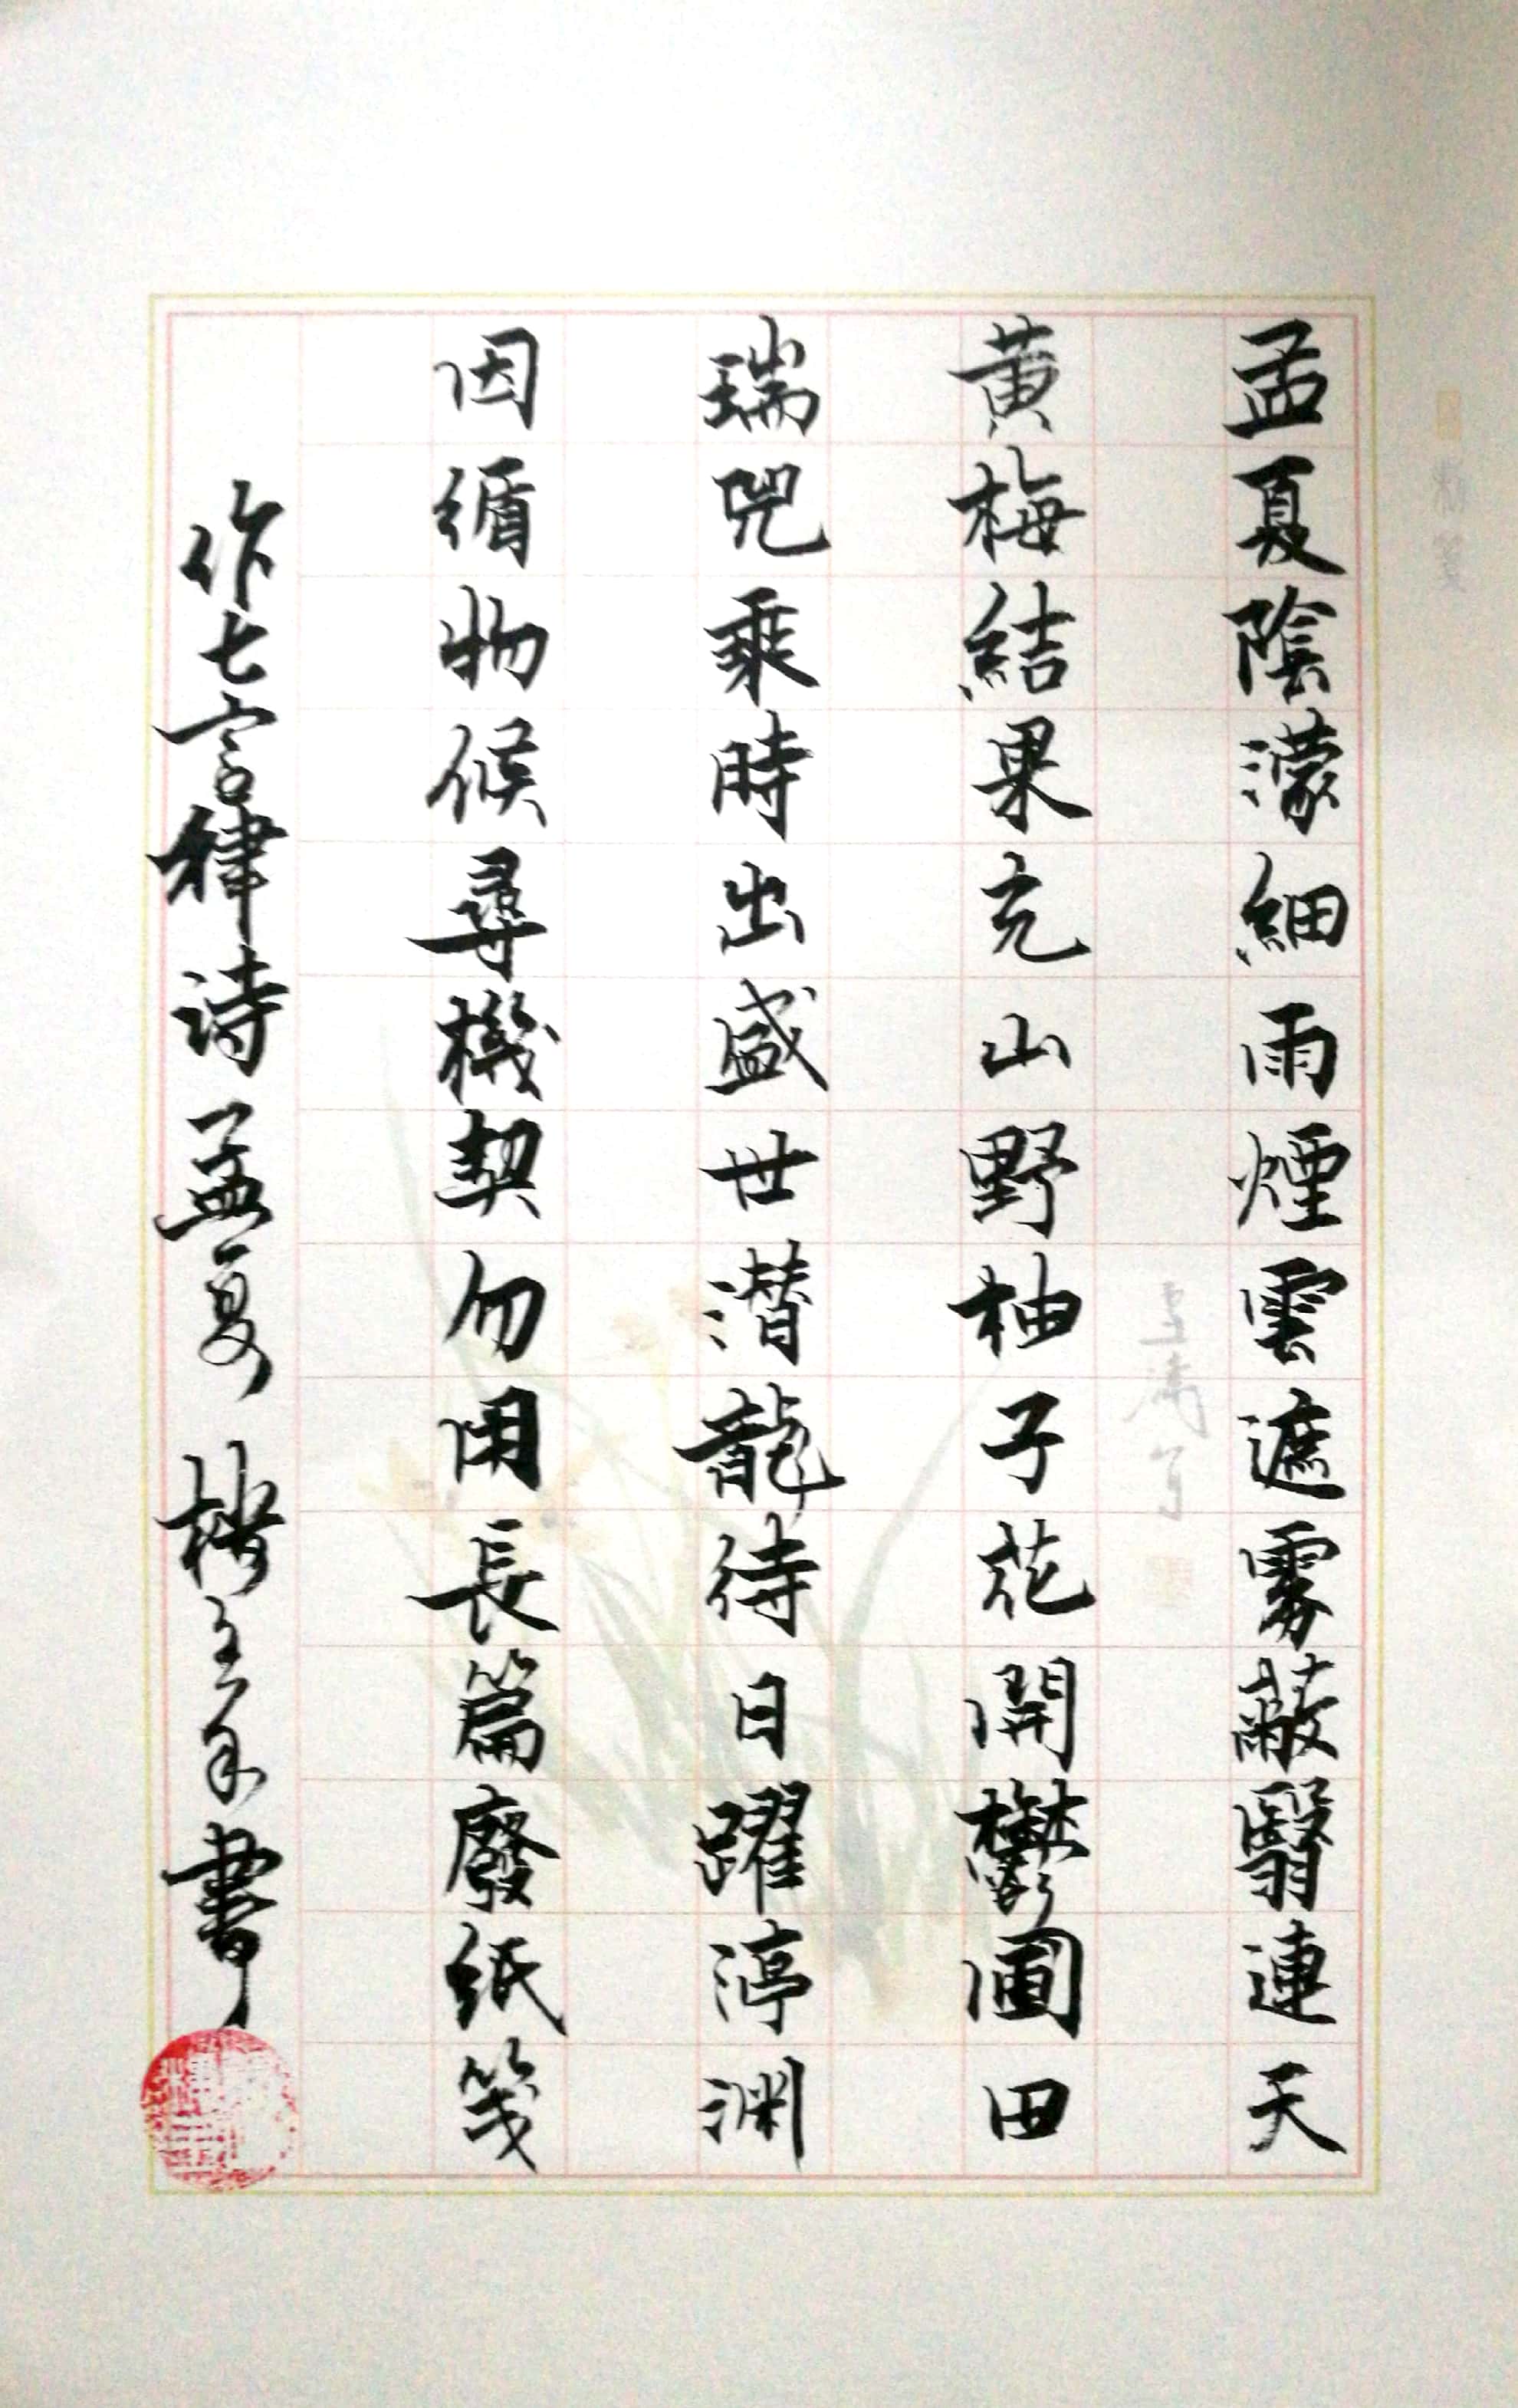 孟夏陰濛細雨煙雲遮霧蔽翳連天
黃梅結果充山野柚子花開鬱圃田
瑞兕乘時出盛世潛龍待日躍渟淵
因循物候尋機契勿用長篇廢紙箋
作七言律诗孟夏 書